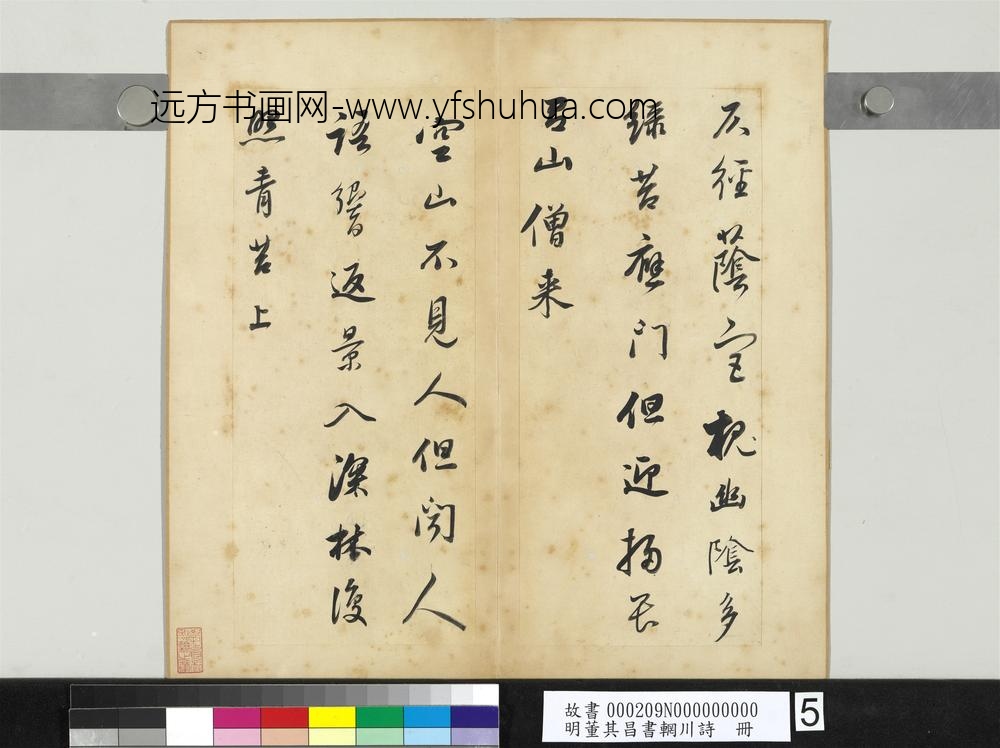 远方书画网-www.yfshuhua.com
仄徑蔭宮槐幽陰多
緑苔應門但迎掃畏
有山僧来
空山不見人但聞人
語響返景入深林復
照青苔上
故書 000209N000000000
明董其昌書輞川詩 冊
5